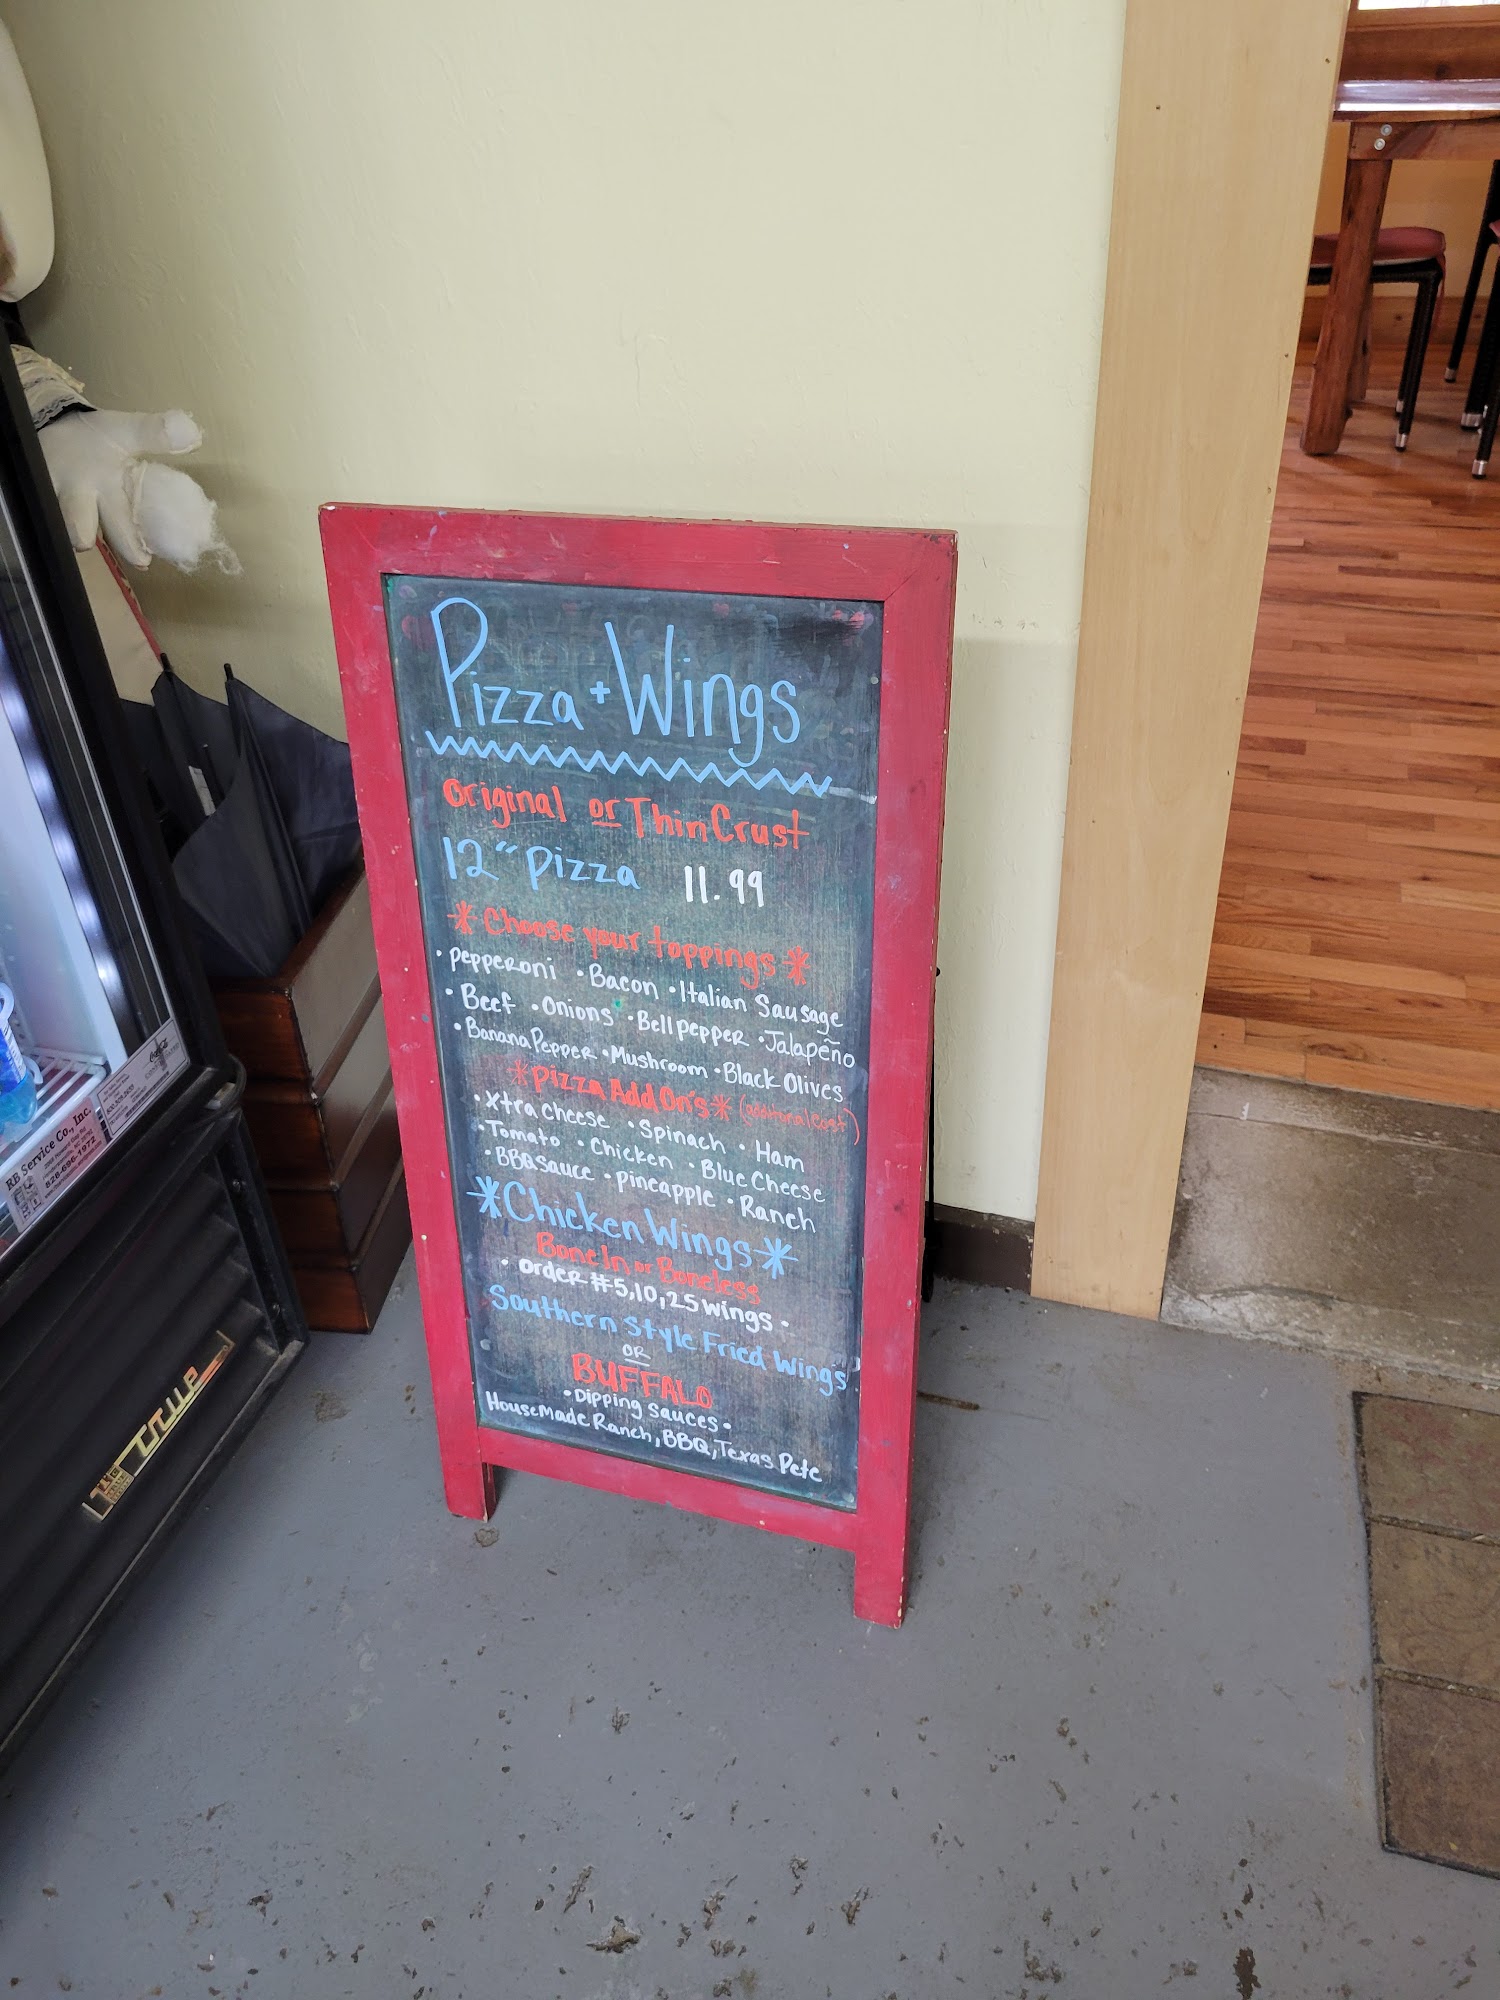 Pizza + Wings
Original or Thin Crust
12" Pizza 11.99
* Choose your toppings *
• pepperoni • Bacon • Italian Sausage
• Beef • Onions • Bell pepper • Jalapeño
• Banana Pepper • Mushroom • Black Olives
* Pizza Add On's * (additional cost)
• Xtra cheese • Spinach • Ham
• Tomato • Chicken • Blue Cheese
• BBQ sauce • pineapple • Ranch
* Chicken Wings *
Bone In or Boneless
• order #5,10,25 wings •
Southern Style Fried Wings
OR
BUFFALO
• Dipping sauces •
Housemade Ranch, BBQ, Texas Pete
RB Service Co., Inc.
828-696-1972
true